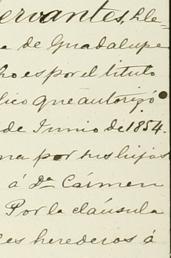 ervantes, Lle-
a de Guadalupe
ho es por el titulo
lico que autorizó
de Junio de 1854.
na por sus hijos
á Dª Cármen
Por la cláusula
es herederos á